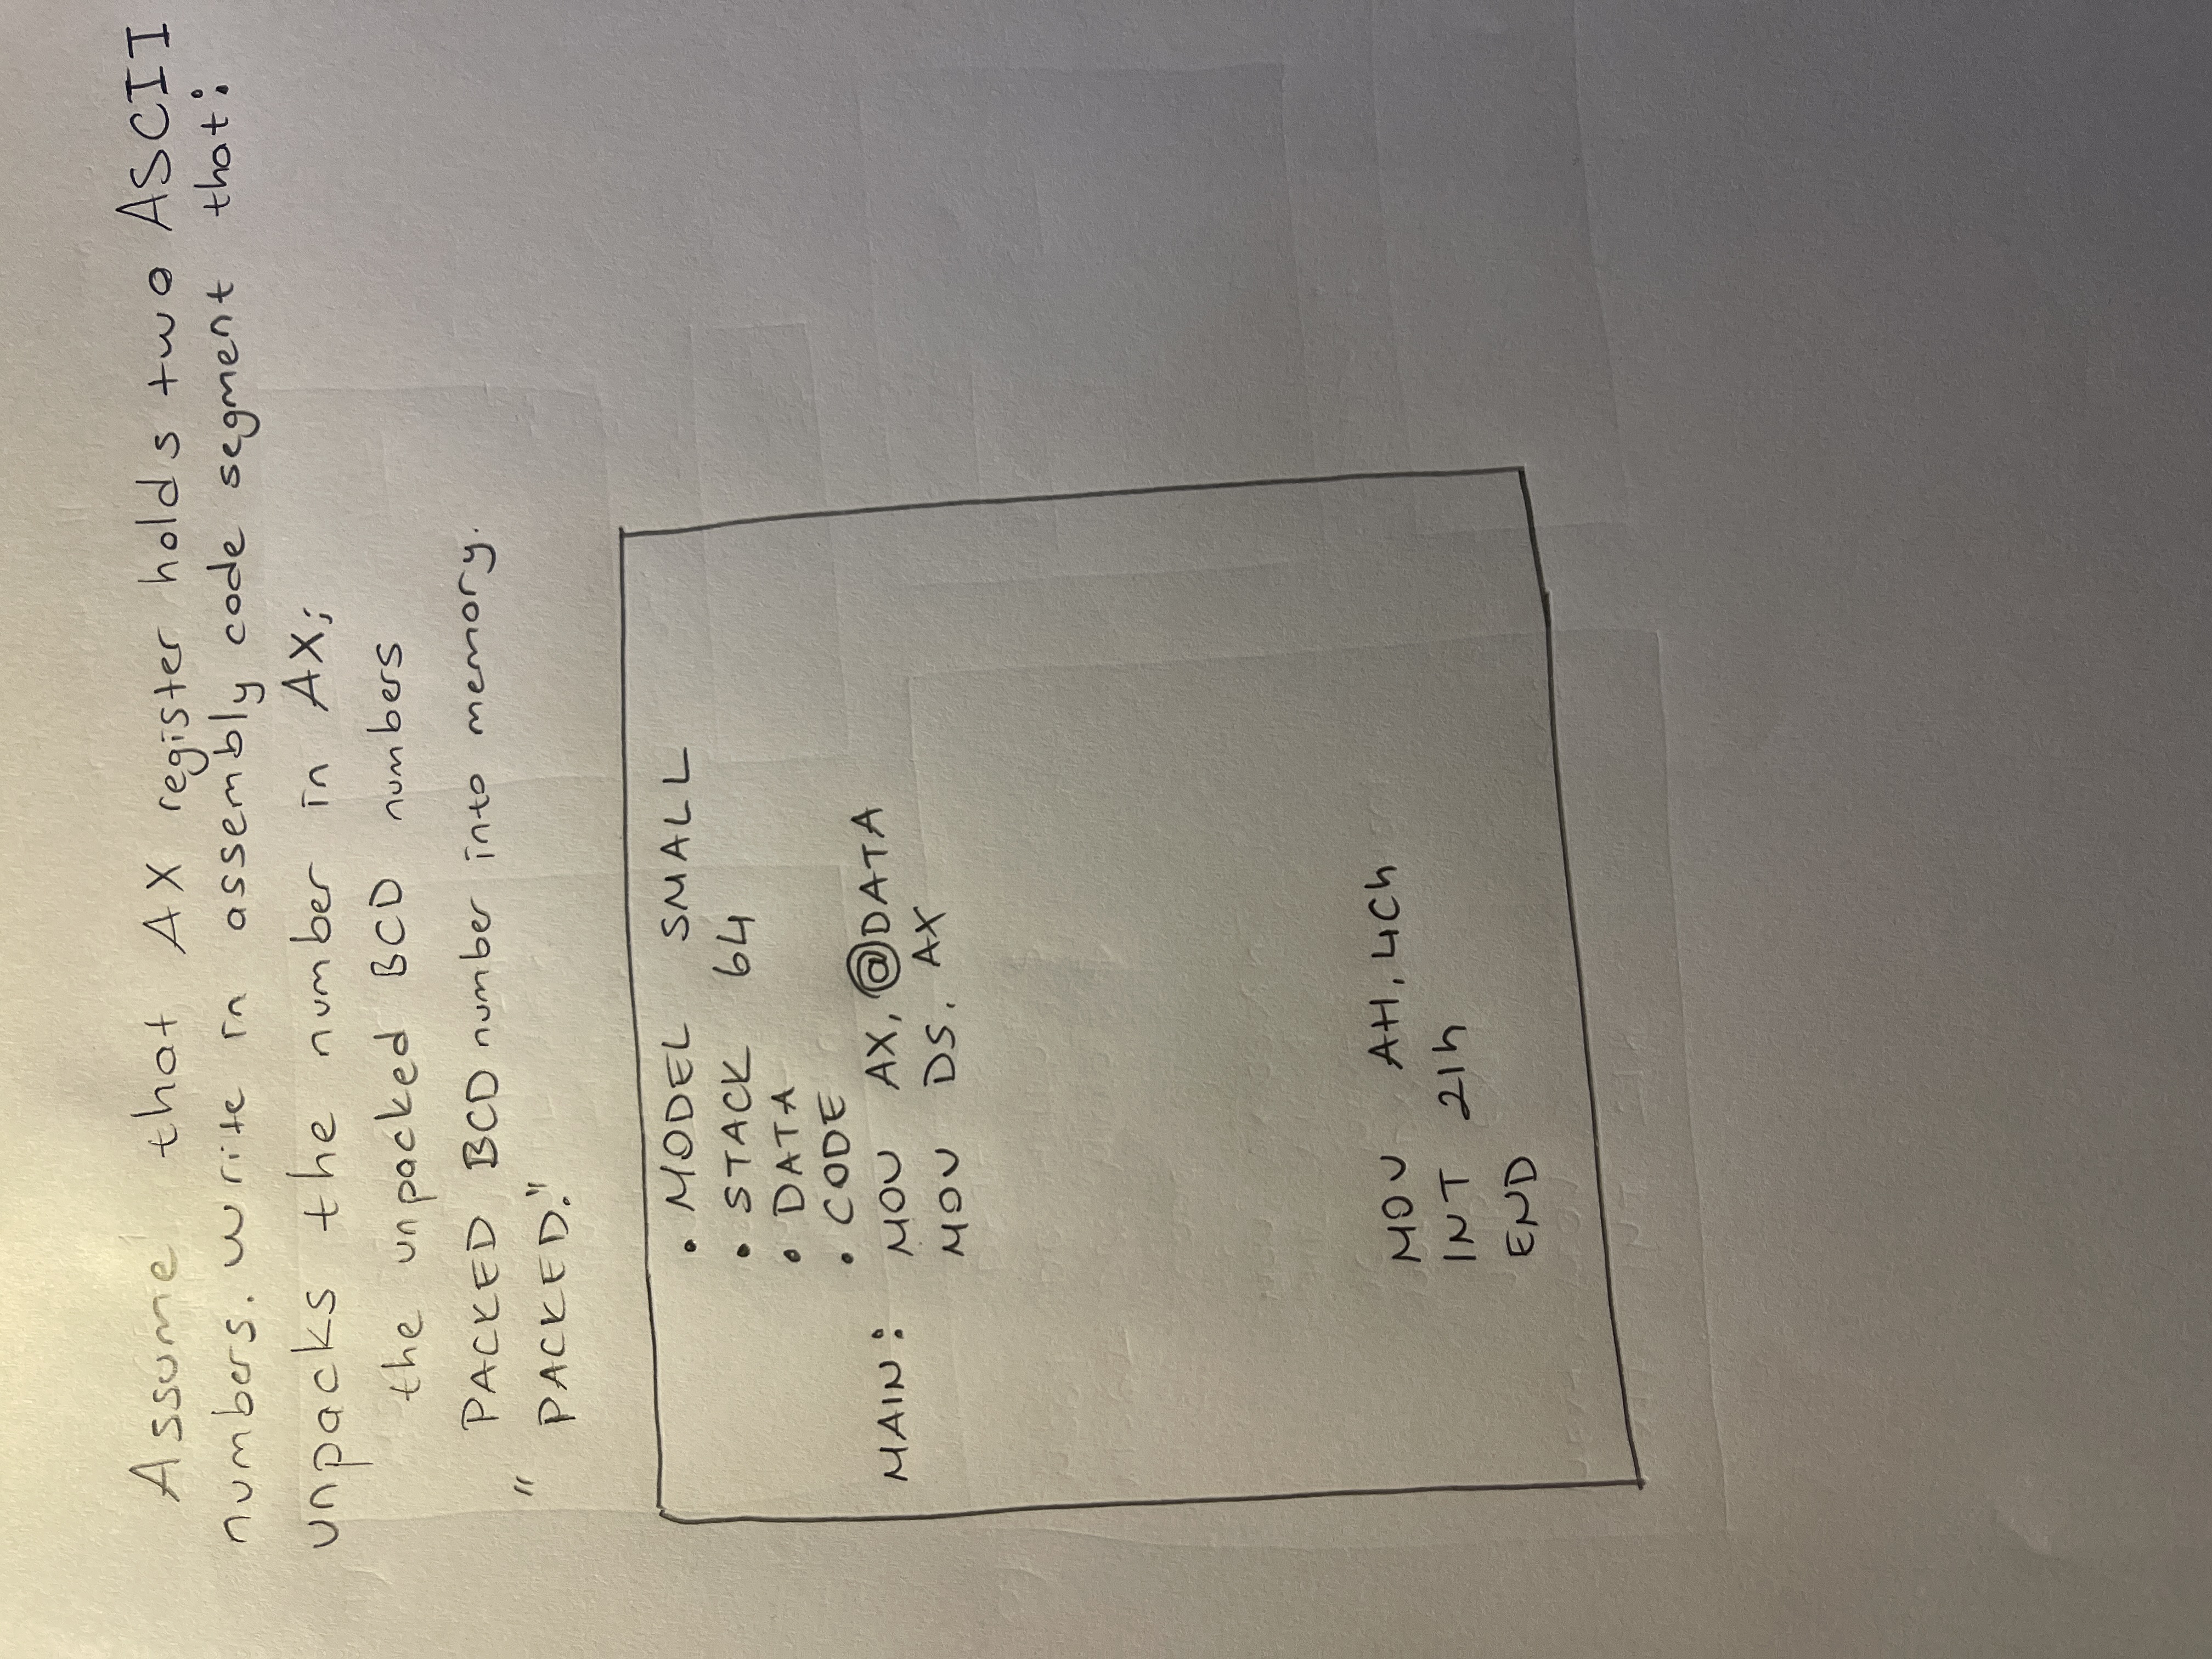 Assume that AX register holds two ASCII
numbers. write in assembly code segment that:
unpacks the number in AX;
the unpacked BCD numbers
PACKED BCD number into memory.
" PACKED."
. MODEL SMALL
. STACK 64
. DATA
. CODE
MAIN: MOV AX, @DATA
MOV DS. AX
MOV AH, 4Ch
INT 21h
END